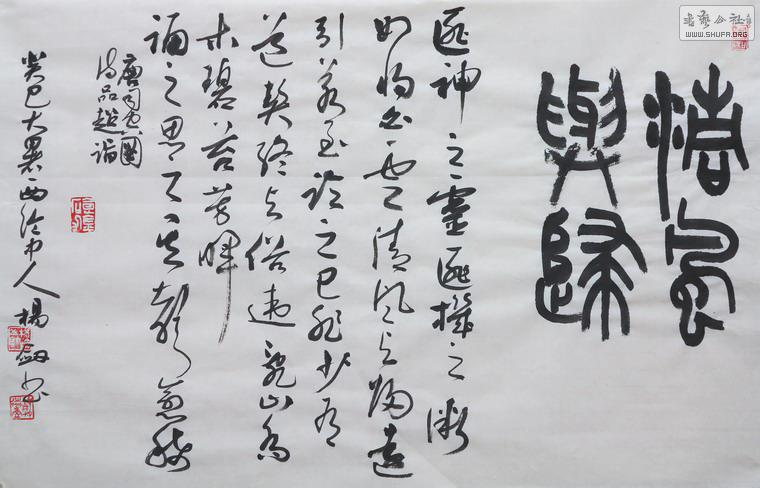 书艺公社
WWW.SHUFA.ORG
清風
與歸
匪神之靈匪機之微
如將白雲清風與歸遠
引若至臨之已非少有
道契終與俗違亂山喬
木碧苔芳暉
誦之思之其聲愈稀
唐司空圖
詩品超詣
癸巳大暑西泠中人楊劍書